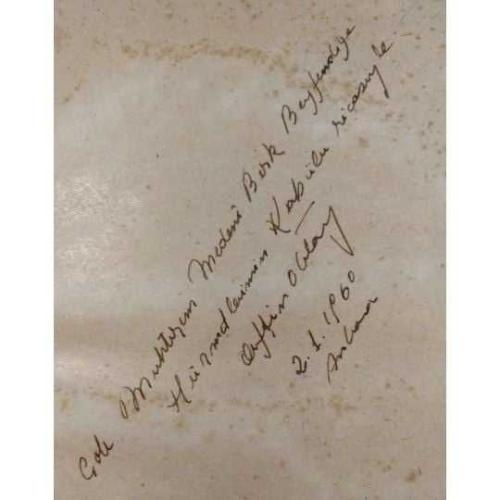 Çok Muhterem Medeni Berk Beyfendiye
Hürmetlerimin Kabulu ricasıyle.
Oktay
2.1.1960
Ankara